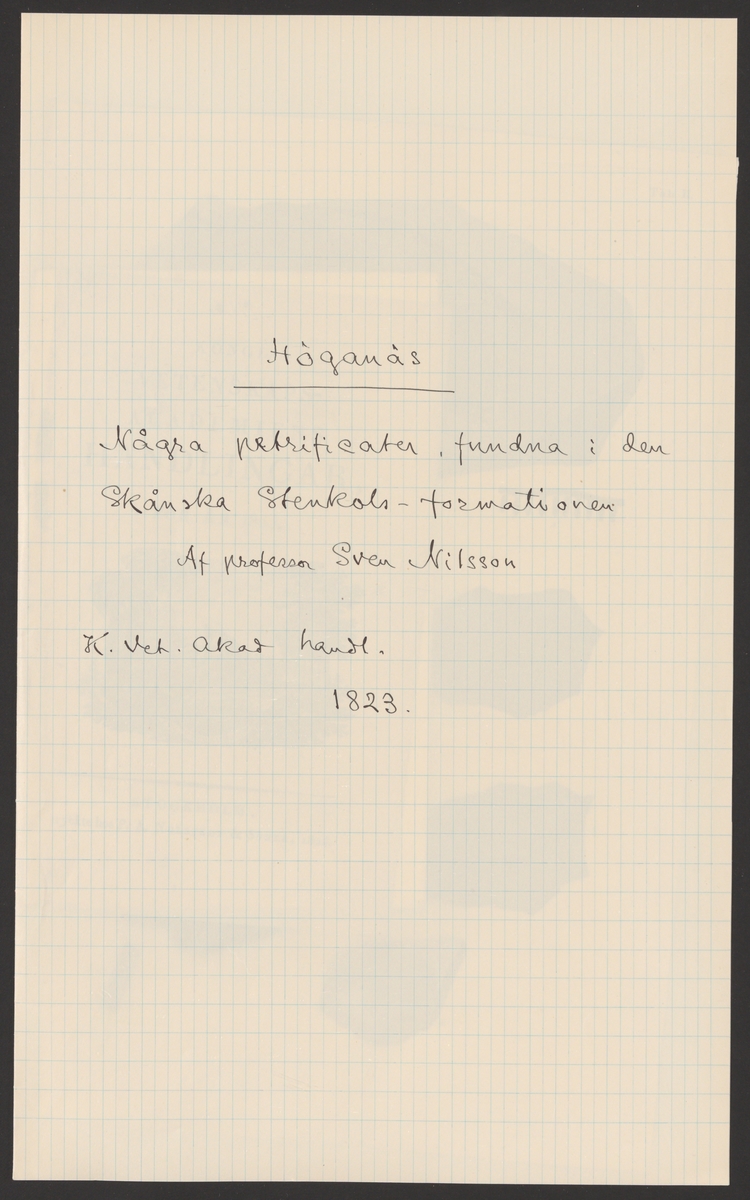 Höganäs
Några petrificater, fundna i den
Skånska Stenkols-formationen
Af professor Sven Nilsson
K. Vet. Akad handl.
1823.